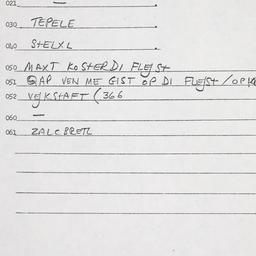 021 —
030 TEPELE
040 StELXL
050 MAXT KOSTER DI FLEJSt
051 GAP VEN ME GIST OP DI FLEJSt / OP
052 VEJKStAFT ( 366
060 —
061 ZALCBRETL